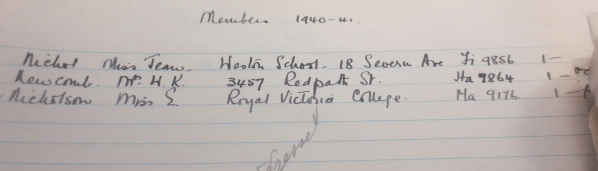 Members 1940-41.
Nichol Miss Jean. Weston School. 18 Severn Ave Fi 9856 1-
Newcomb. Mr. H. K. 3457 Redpath St. Ha 9864 1-
Nicholson Miss E Royal Victoria College. Ma 9176 1-